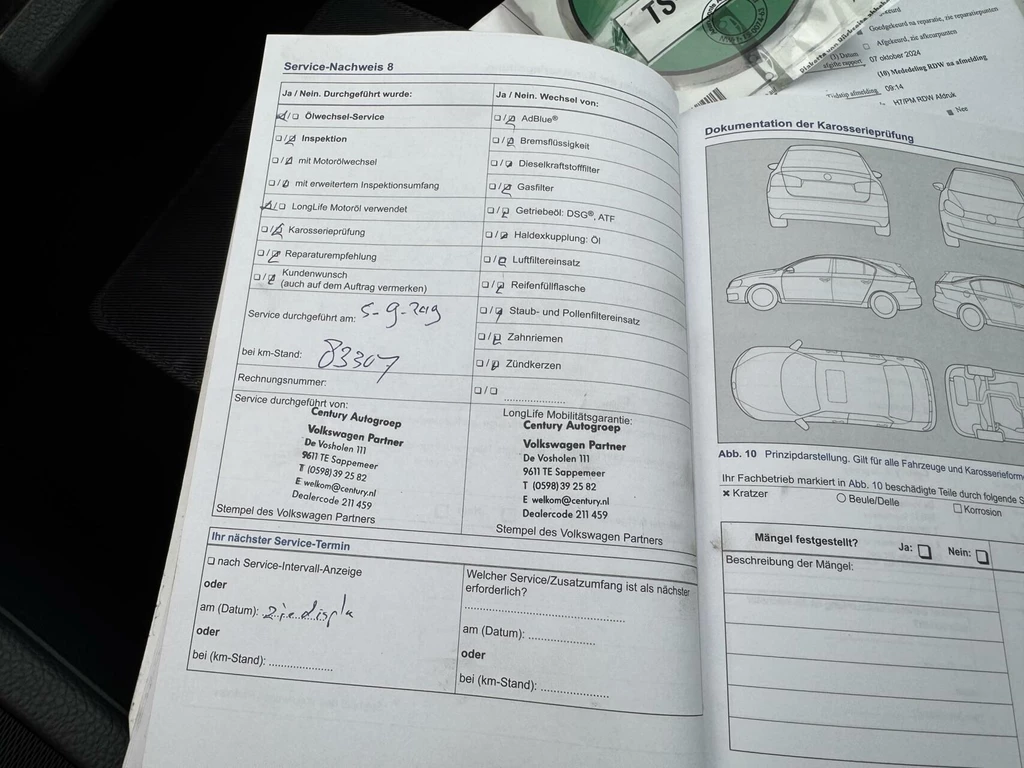 TS
Goedgekeurd na reparatie, zie reparatiepunten
Afgekeurd, zie afkeurpunten
(1) Datum
afgifte rapport 07 oktober 2024
(18) Mededeling RDW na afmelding
Tijdstip afmelding 09:14
H7/PM RDW Afdruk
Nee
Service-Nachweis 8
Ja / Nein. Durchgeführt wurde:
☐/☐ Ölwechsel-Service
☐/☐ Inspektion
☐/☐ mit Motorölwechsel
☐/☐ mit erweitertem Inspektionsumfang
☐/☐ LongLife Motoröl verwendet
☐/☐ Karosserieprüfung
☐/☐ Reparaturempfehlung
☐/☐ Kundenwunsch
(auch auf dem Auftrag vermerken)
Service durchgeführt am: 5-9-2019
bei km-Stand: 83307
Rechnungsnummer:
Service durchgeführt von:
Century Autogroep
Volkswagen Partner
De Vosholen 111
9611 TE Sappemeer
T (0598) 39 25 82
E welkom@century.nl
Dealercode 211 459
Stempel des Volkswagen Partners
Ja / Nein. Wechsel von:
☐/☐ AdBlue®
☐/☐ Bremsflüssigkeit
☐/☐ Dieselkraftstofffilter
☐/☐ Gasfilter
☐/☐ Getriebeöl: DSG®, ATF
☐/☐ Haldexkupplung: Öl
☐/☐ Luftfiltereinsatz
☐/☐ Reifenfüllflasche
☐/☐ Staub- und Pollenfiltereinsatz
☐/☐ Zahnriemen
☐/☐ Zündkerzen
☐/☐ ....................
LongLife Mobilitätsgarantie:
Century Autogroep
Volkswagen Partner
De Vosholen 111
9611 TE Sappemeer
T (0598) 39 25 82
E welkom@century.nl
Dealercode 211 459
Stempel des Volkswagen Partners
Ihr nächster Service-Termin
☐ nach Service-Intervall-Anzeige
oder
am (Datum): zie displa
oder
bei (km-Stand): ....................
Welcher Service/Zusatzumfang ist als nächster
erforderlich?
am (Datum): ....................
oder
bei (km-Stand): ....................
Dokumentation der Karosserieprüfung
Abb. 10 Prinzipdarstellung. Gilt für alle Fahrzeuge und
Ihr Fachbetrieb markiert in Abb. 10 beschädigte Teile durch folgende
× Kratzer
○ Beule/Delle
☐ Korrosion
Mängel festgestellt? Ja: ☐ Nein: ☐
Beschreibung der Mängel: